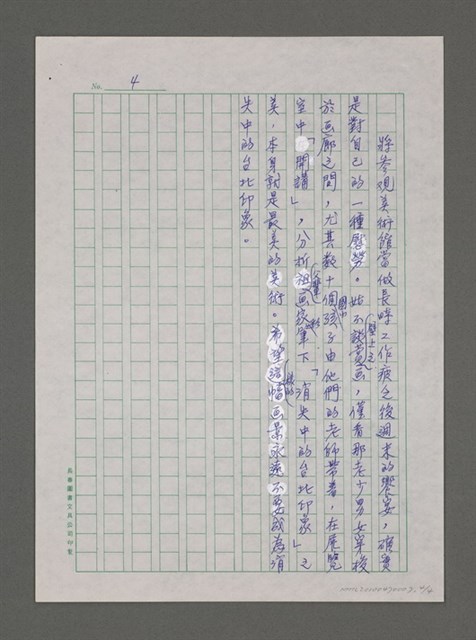 No. 4
將參觀美術館當做長時工作疲乏後週末的饗宴，確實
是對自己的一種慰勞。姑不談壁上之畫，僅看那老少男女穿梭
於画廊之間，尤其數十個國小孩子由他們的老師帶著，在展覽
室中「開講」，分析祖父輩画家筆下「消失中的台北印象」之
美，本身就是最美的美術。希望這幅画景永遠不要成為消
失中的台北印象。